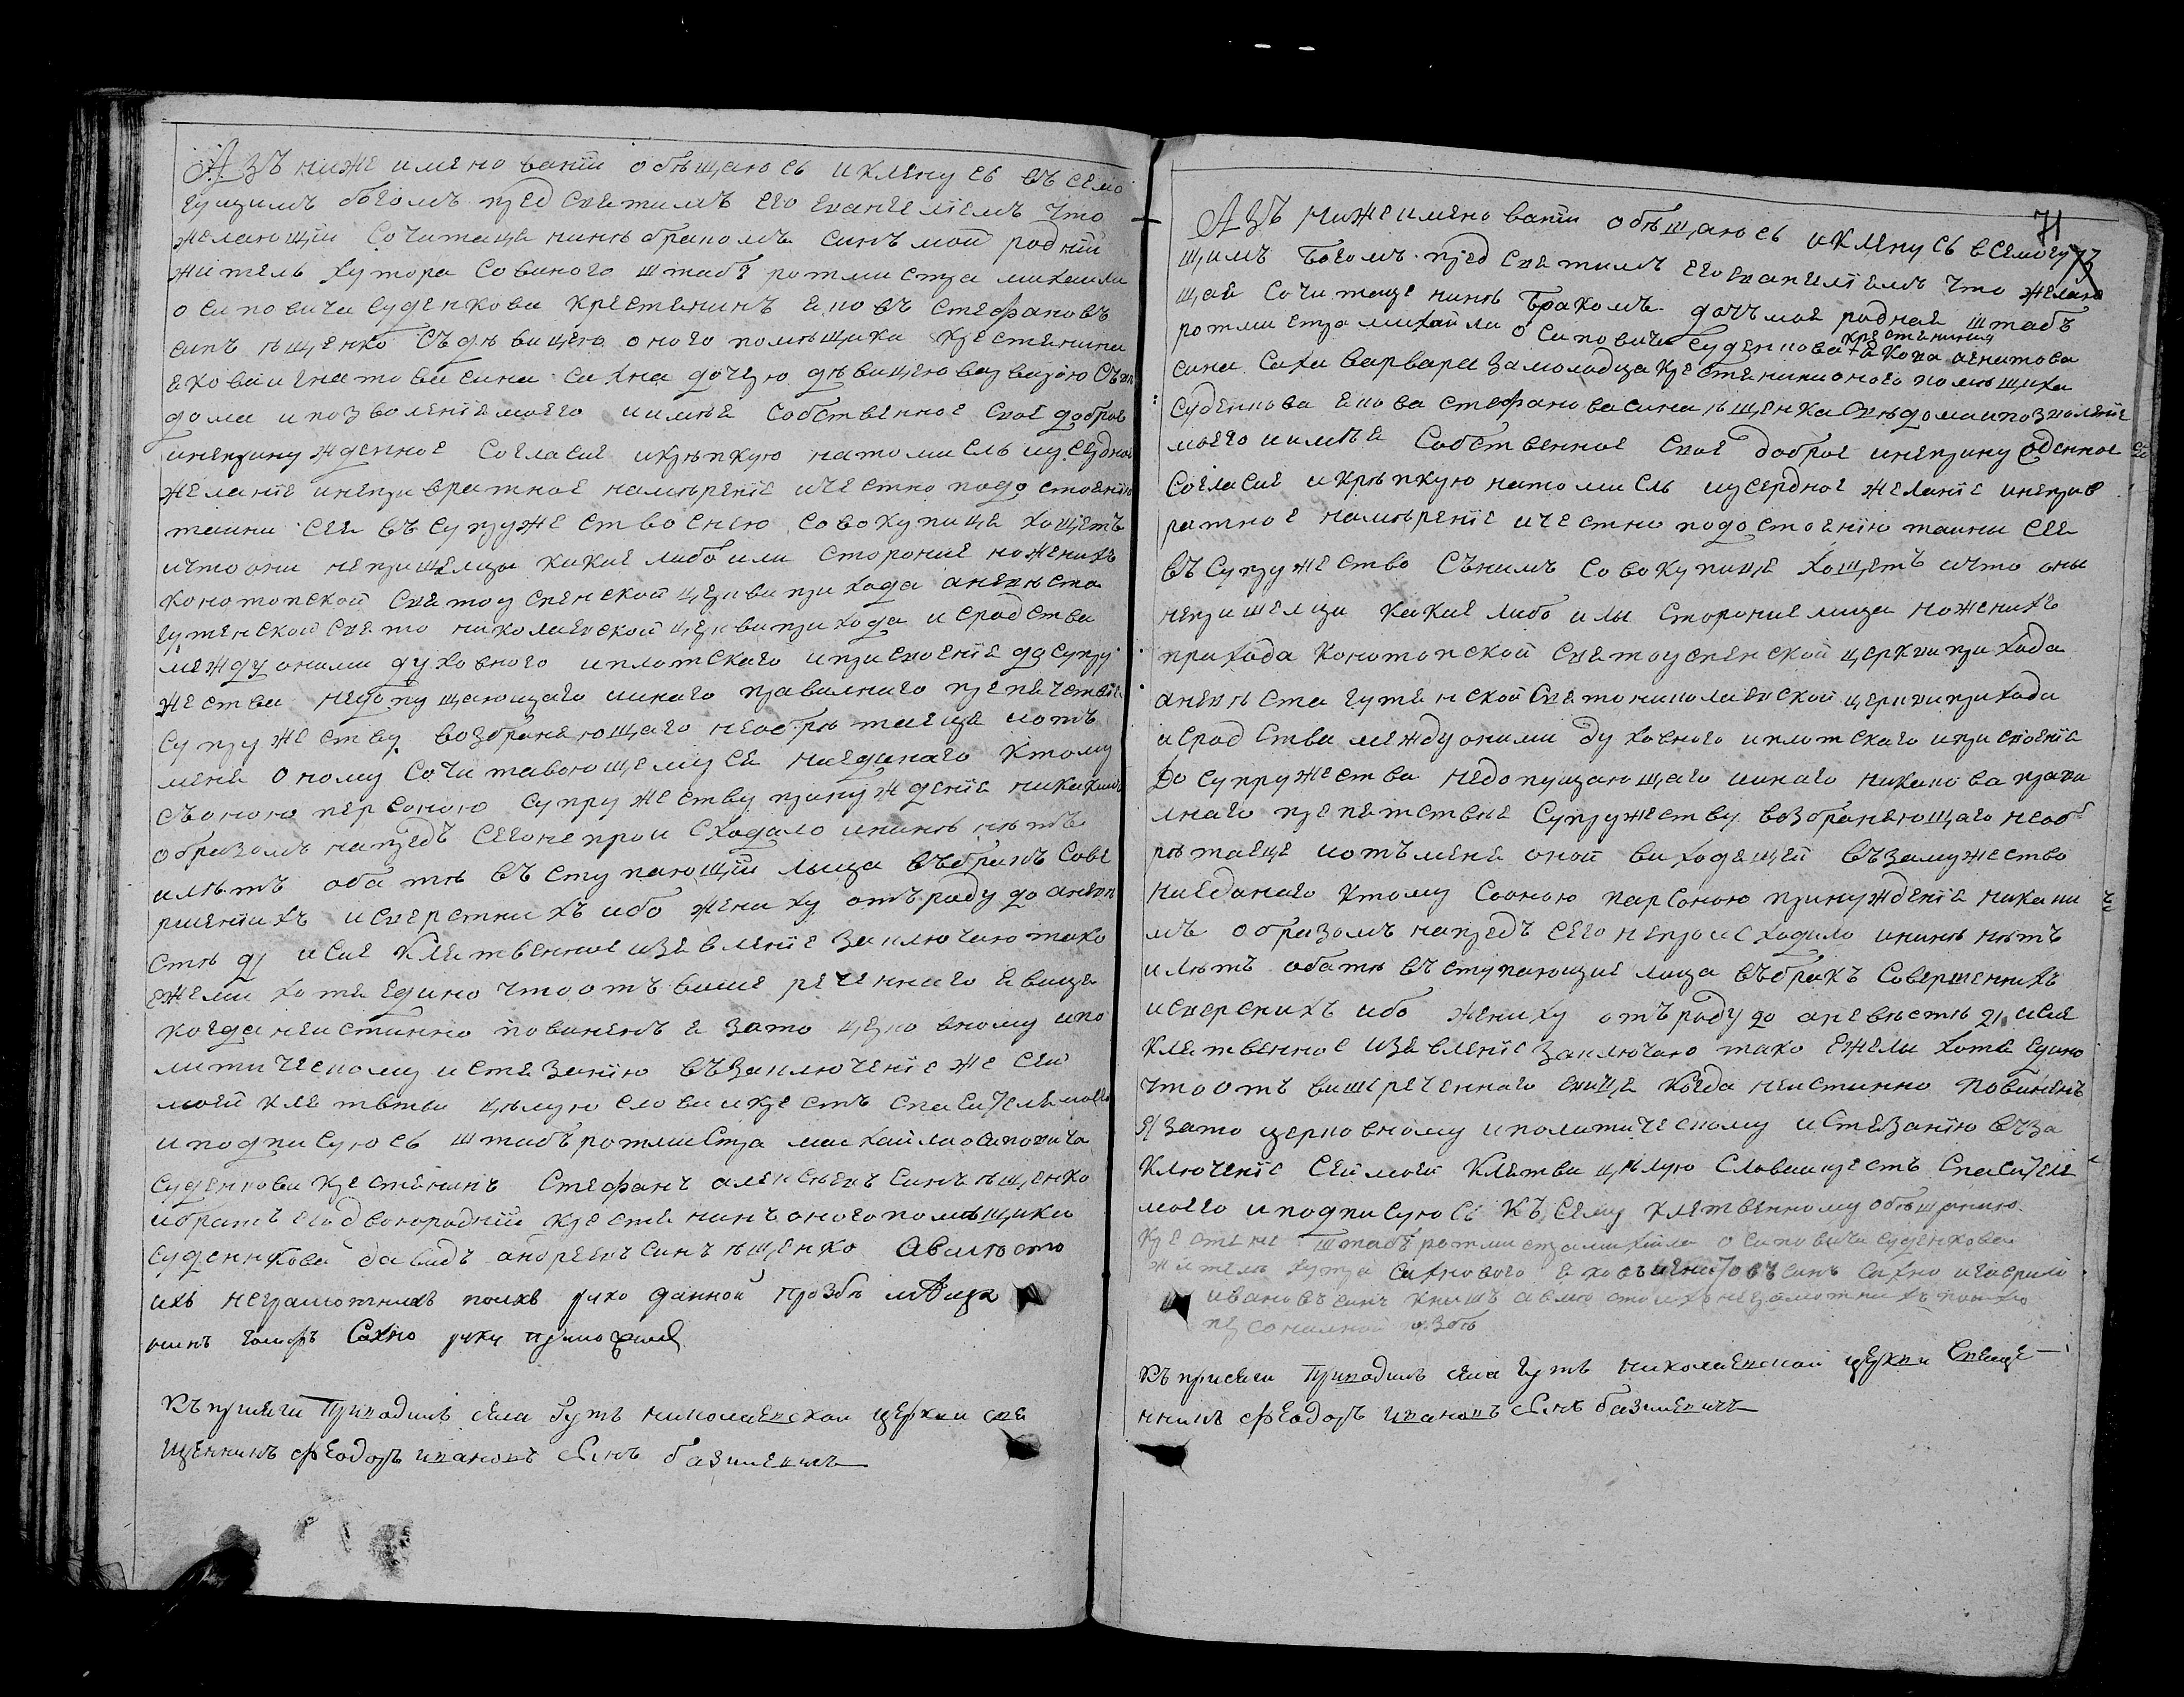 Азъ нижеимено ванїи обѣщаюсь иклянусь въсемо
гущимъ богомъ пред святимъ его евангелїемъ что
желающїи сочитаця нинѣ бракомъ синъ мой роднїй
житель хутора Совиного штабъ ротмистра михаили
осиповича суденкова крестянинъ яковъ стефановъ
синъ ѣщенко съдѣвицею оного помѣщика крестянина
якова игнатова сина сахна дочерю дѣвицею варварою съвѣ
дома ипозволенїя моего иимѣя собственное свое доброе
инепринужденное согласие икрѣпкую натомисль иусердное
желанїе инепревратное намѣренїе ичестно подостоянїю
таини сея въсупружество снею совокупиця хощетъ
ичтоони непришелци какие либо или стороние ноженихъ
конотопской святоуспенской церкви прихода аневѣста
гутянской свято николаевской церкви прихода исродства
между оними духовного иплотскаго иприсвоенїя досупру
жества недопущающаго иинаго правилнаго препятствїя
супружеству возбраняющаго необрѣтаеця иотъ
мене оному сочитавающемуся наединаго ктому
съоною персоною супружеству принужденїя никакимъ
образомъ напредъ сегоне происходило ининѣ нѣтъ
илѣтъ обатѣ въступающїи лица въбракъ сове
ршеннихъ исверстнихъ ибо жениху отъроду 20 аневѣ
стѣ 21 исие клятвенное изявленїе заключаю тако
ежели хотя едино чтоотъ више реченнаго явиця
когда неистинно повиненъ я зато церковному ипо
литическому истязанїю възаключенїе же сей
моей клятвы цѣлую слова икрестъ спасителя моего
иподписуюсь штабъ ротмистра михайли осиповича
суденкова крестянинъ стефанъ алексѣевъ синъ ѣщенко
ибратъ его двоюроднїй крестянинъ оного помѣщика
суденкова давидъ андреевъ синъ ѣщенко авмѣсто
ихъ неграмотнихъ поихъ
Сахно руку приложилъ
Къ присяги Приводилъ села Гутъ николаевской церкви свя
щенникъ феодоръ ивановъ синъ базилевичъ
71
Азъ нижеимено ванїи обѣщаюсь иклянусь всемогу
щимъ Богомъ пред святимъ его евангелїемъ что желаю
щая сочитаця нинѣ бракомъ дочъ моя родная штабъ
ротмистра михайли осиповича суденкова крестянина якова игнатова
сина Сахи варвара замолодца крестянина оного помѣщика
суденкова якова стефанова сина ѣщенка свѣдома ипозволенїя
моего иимѣя собственное свое доброе инепринужденное
согласие икрѣпкую натомисль иусердное желанїе инеприв
ратное намѣренїе ичестно подостоянїю таини сея
въсупружество снимъ совокупиця хощетъ ичто они
непришелци какие либо или стороние лица ноженихъ
прихода конотопской святоуспенской церкви прихода
аневѣста гутянской святониколаевской церкви прихода
исродства между оними духовного иплотскаго иприсвоенїя
до супружества недопущающаго иинаго никакова прави
лнаго препятствия супружеству возбраняющаго необ
рѣтаеця иотъмене оной виходящей възамужество
наединаго ктому соною парсоною принужденїя никаки
мъ образомъ напредъ сего непроисходило ининѣ нѣтъ
илѣтъ обатѣ въступающие лица въбракъ совершеннихъ
исверснихъ ибо жениху отъроду 20 аневѣстѣ 21 исие
клятвенное изявленїе заключаю тако ежели хотя едино
чтоотъ вишереченнаго явиця когда неистинно повиненъ
я зато церковному иполитическому истязанїю въза
ключенїе сей моей клятви цѣлую слова икрестъ спасителя
моего иподписуюсь къ сему клятвенному обѣщанию
крестяне штабъ ротмистра михайла осиповича суденкова
жители хутра сахнового яковъ игнатовъ синъ сахно игаврило
ивановъ синъ книшъ авмѣсто ихъ неграмотнихъ поихъ
персоналной прозбѣ
Къ присяги Приводилъ села Гутъ николаевской церкви Свяще
нникъ феодоръ ивановъ синъ базилевичъ